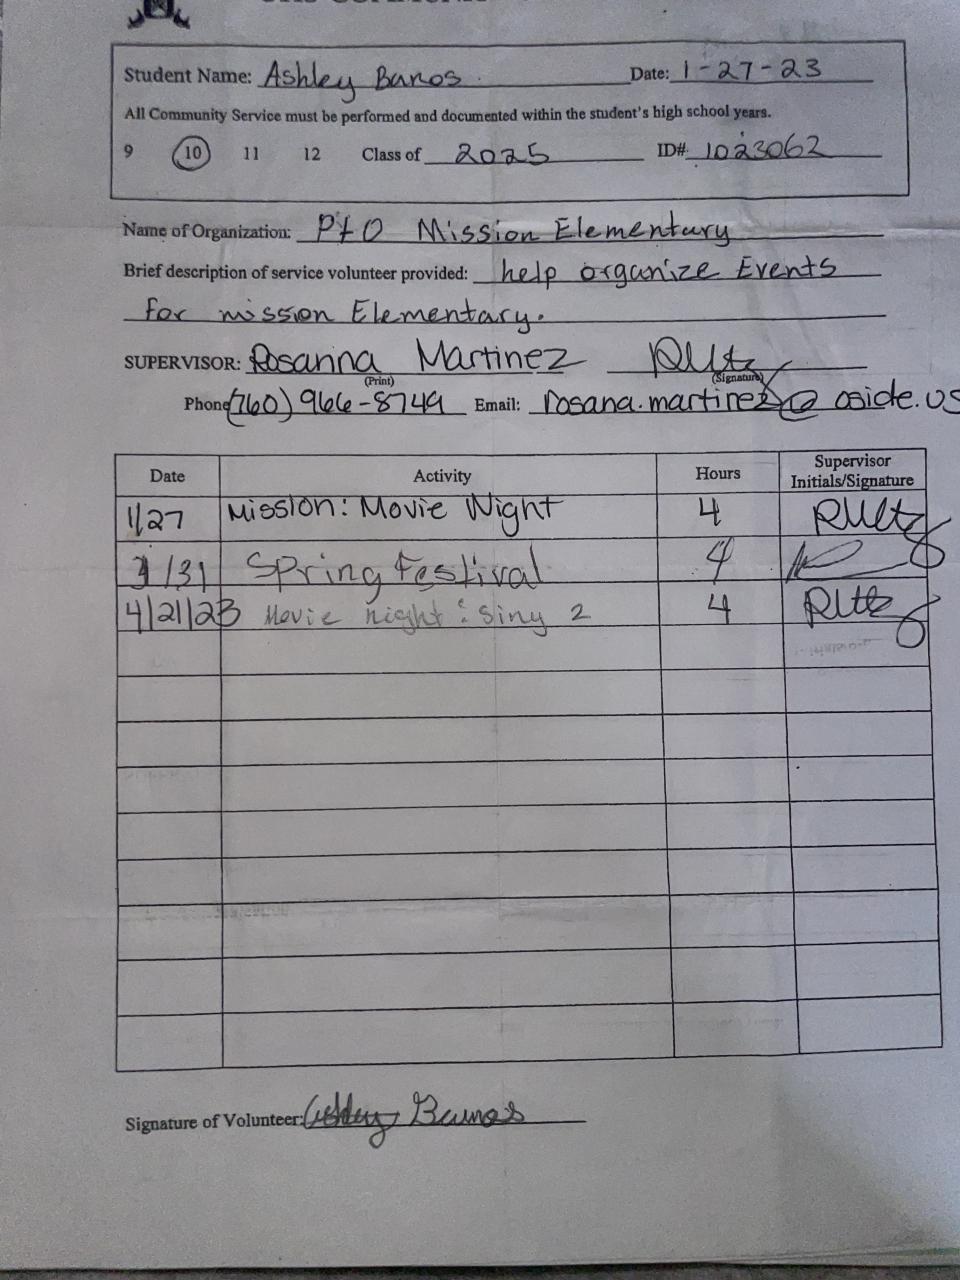 Student Name: Ashley Banos Date: 1-27-23
All Community Service must be performed and documented within the student's high school years.
9 10 11 12 Class of 2025 ID# 1023062
Name of Organization: PtO Mission Elementary
Brief description of service volunteer provided: help organize Events
for mission Elementary.
SUPERVISOR: Rosanna Martinez
(Print) (Signature)
Phone (760) 966-8749 Email: rosana.martinez@oside.us
Date Activity Hours Supervisor Initials/Signature
1/27 Mission: Movie Night 4
3/31 Spring Festival 4
4/21/23 Movie night: Siny 2 4
Signature of Volunteer: Ashley Banos